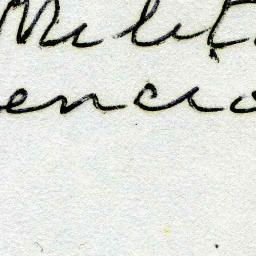 Milit
encio